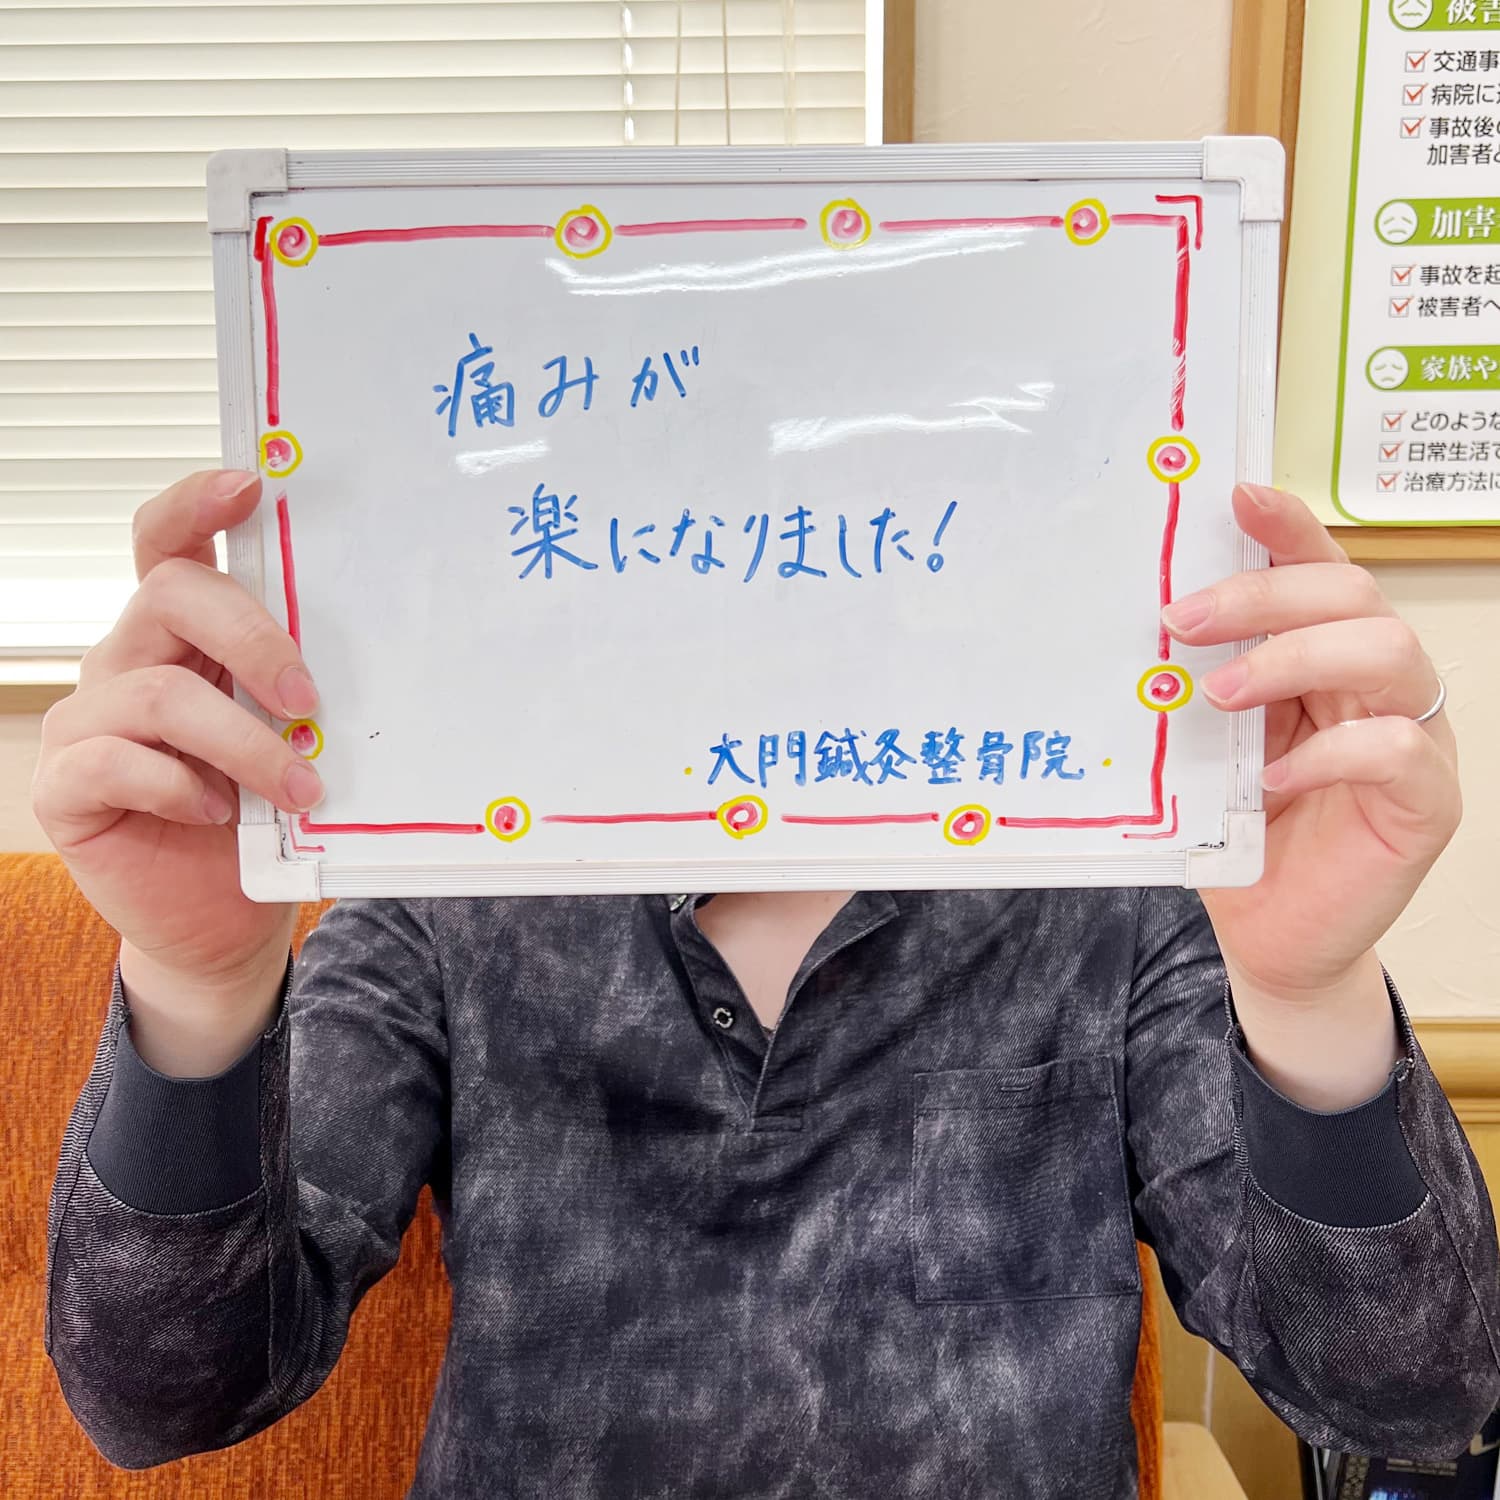 痛みが
楽になりました!
大門鍼灸整骨院
被害
交通事
病院に
事故後
加害者
加害
事故を起
被害者へ
家族や
どのような
日常生活で
治療方法に